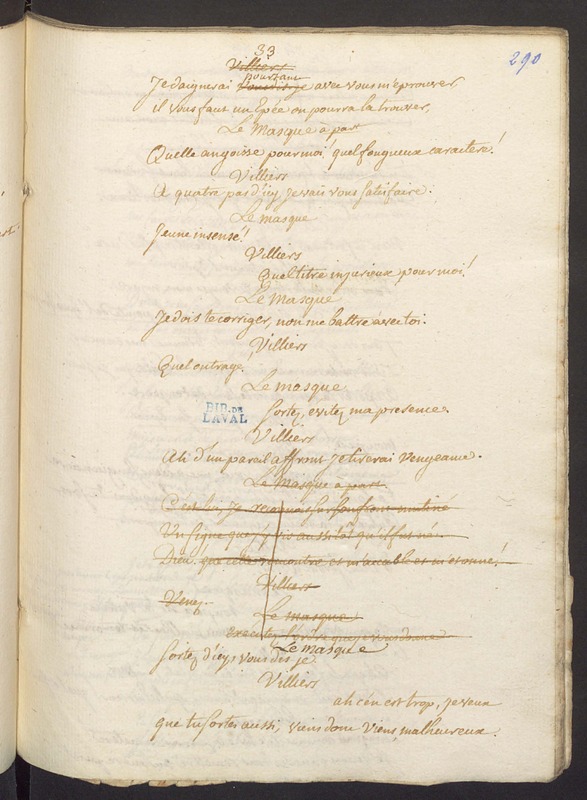 33
290
Villiers
pourtant
Je daignerai avec vous m'éprouver
il vous faut un Epée on pourra la trouver.
Le Masque à part
Quelle angoisse pour moi! quel fougueux caractere!
Villiers
A quatre pas d'icy, je vais vous satisfaire.
Le masque
Jeune insensé!
Villiers
Quel titre injurieux pour moi!
Le Masque
Je dois te corriger, non me battre avec toi.
Villiers
Quel outrage!
Le masque
sortez, evitez ma presence.
BIB. DE
LAVAL
Villiers
Ah d'un pareil affront je tirerai Vengeance.
Le Masque à part
C'est lui, je reconnois sur son front mutiné
Un signe que j'y vis aussitôt qu'il fut né.
Dieu! que cette rencontre et m'accable et m'etonne!
Villiers
Venez.
Le masque
executez l'ordre que je vous donne
Le Masque
sortez d'icy, vous dis je
Villiers
ah c'en est trop, je veux
que tu sortes aussi, viens donc viens, malheureux.